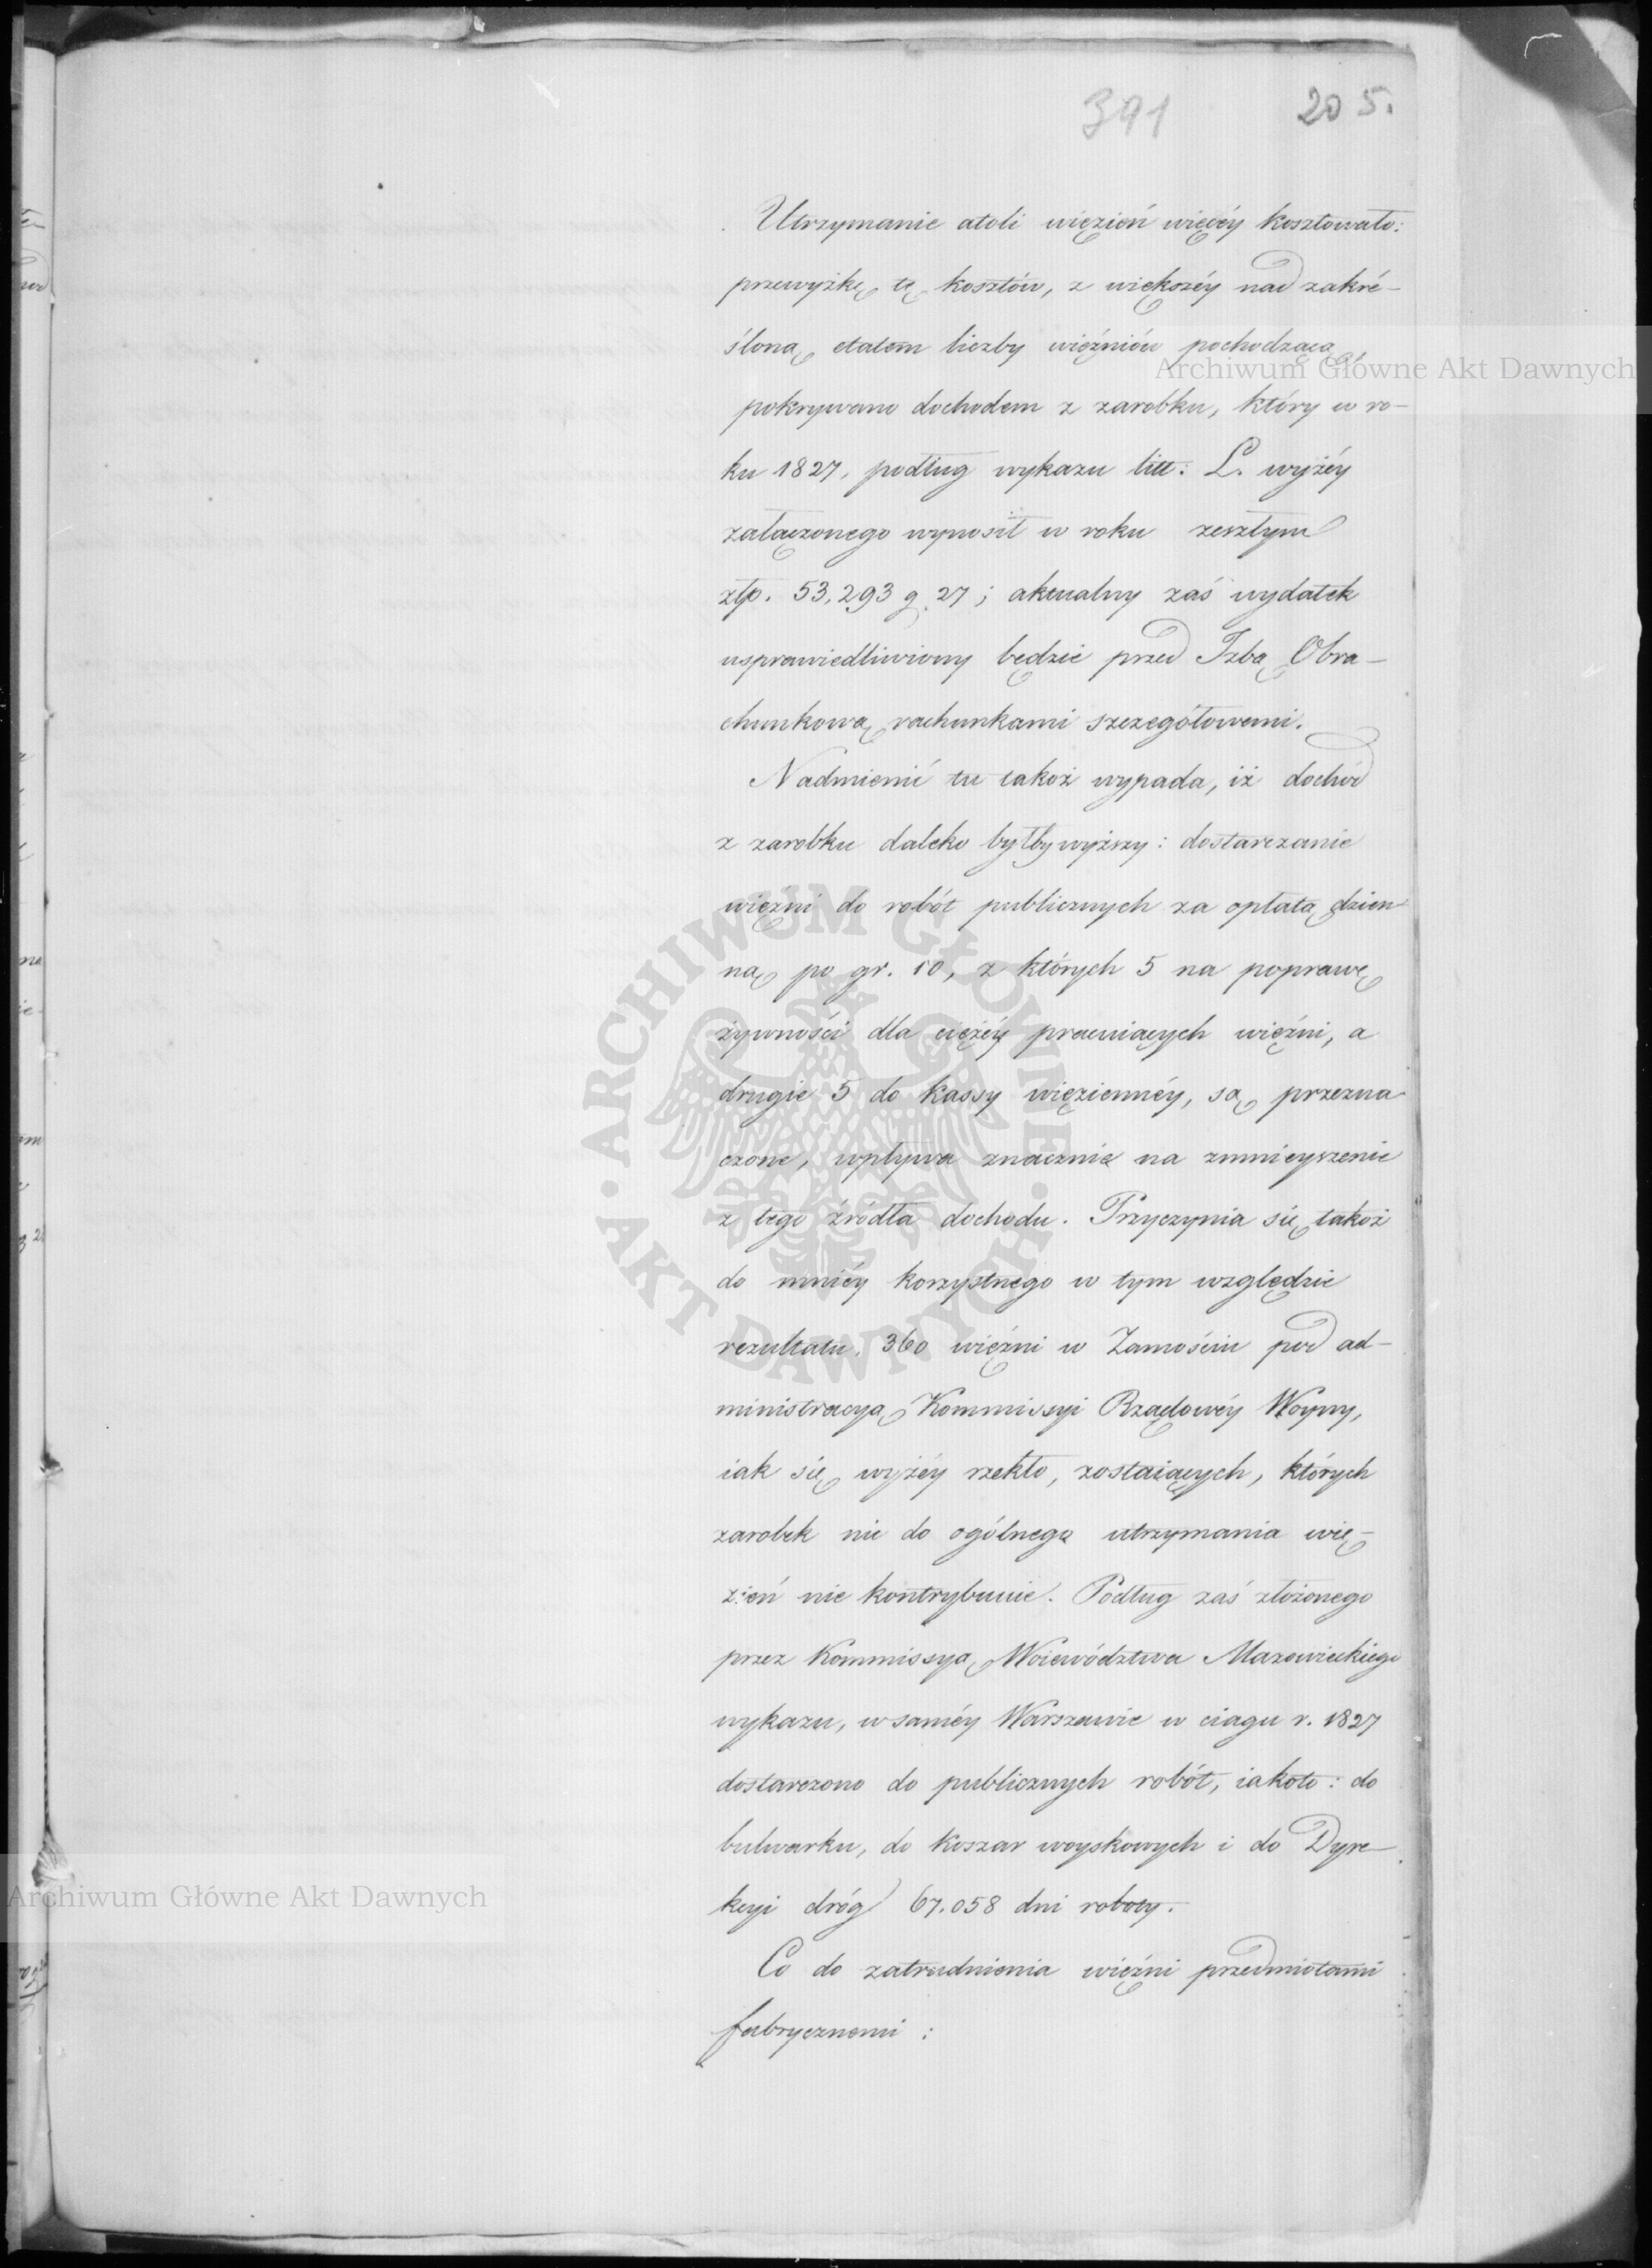 391 205.
Utrzymanie atoli więzień więcéy kosztowało:
przewyżkę tę kosztów, z większéy nad zakré-
śloną etatem liczby więźniów pochodzącą,
pokrywano dochodem z zarobku, który w ro-
ku 1827, podług wykazu litt: L. wyżéy
załączonego wynosił w roku zeszłym
złp. 53,293 g 27; aktualny zaś wydatek
usprawiedliwiony będzie przed Izbą Obra-
chunkową rachunkami szczegółowemi.
Nadmienić tu takoż wypada, iż dochód
z zarobku daleko byłby wyższy: dostarczanie
więźni do robót publicznych za opłatą dzien-
ną po gr. 10, z których 5 na poprawę
żywności dla ciężéy pracuiących więźni, a
drugie 5 do kassy więziennéy, są przezna-
czone, wpływa znacznie na zmnieyszenie
z tego źródła dochodu. Przyczynia się takoż
do mniéy korzystnego w tym względzie
rezultatu, 360 więźni w Zamościu pod ad-
ministracyą Kommissyi Rządowéy Woyny,
iak się wyżéy rzekło, zostaiących, których
zarobek nic do ogólnego utrzymania wię-
zień nie kontrybuuie. Podług zaś złożonego
przez Kommissyą Woiewództwa Mazowieckiego
wykazu, w saméy Warszawie w ciągu r. 1827
dostarczono do publicznych robót, iakoto: do
bulwarku, do koszar woyskowych i do Dyre-
kcyi dróg 67.058 dni roboty.
Co do zatrudnienia więźni przedmiotami
fabrycznemi:
Archiwum Główne Akt Dawnych
ARCHIWUM GŁÓWNE · AKT DAWNYCH ·
Archiwum Główne Akt Dawnych